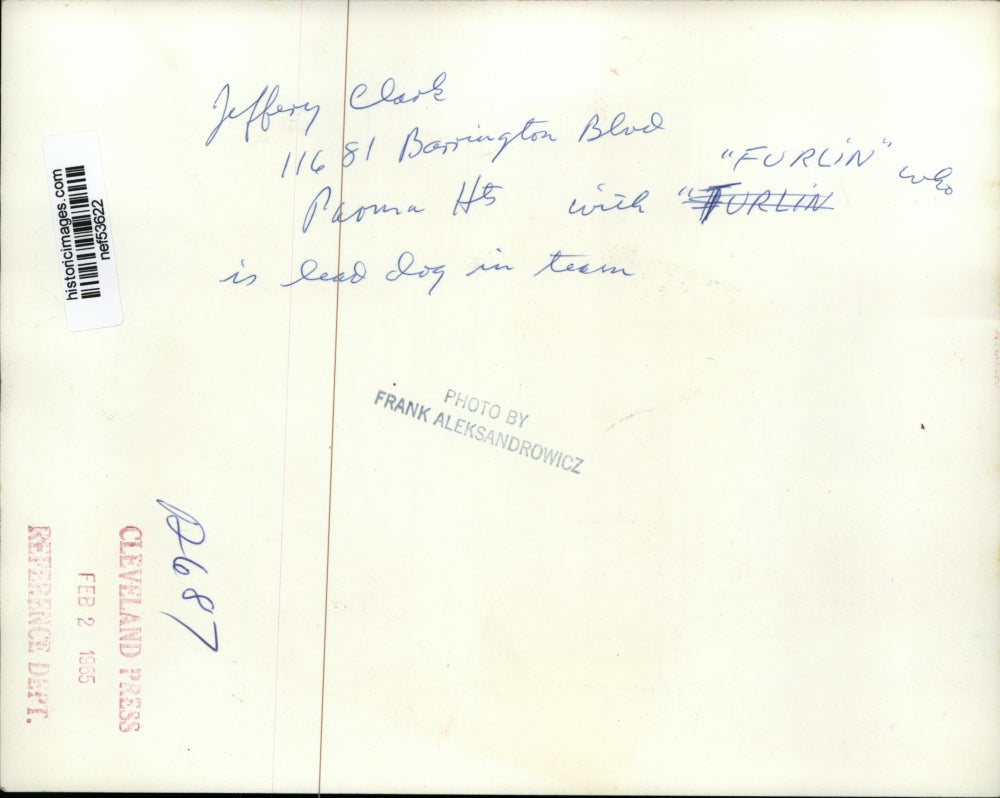 Jeffery Clark
11681 Barrington Blvd
"FURLIN" who
Parma Hts with "TURLIN
is lead dog in team
historicimages.com
nef53622
PHOTO BY
FRANK ALEKSANDROWICZ
CLEVELAND PRESS
FEB 2 1965
REFERENCE DEPT.